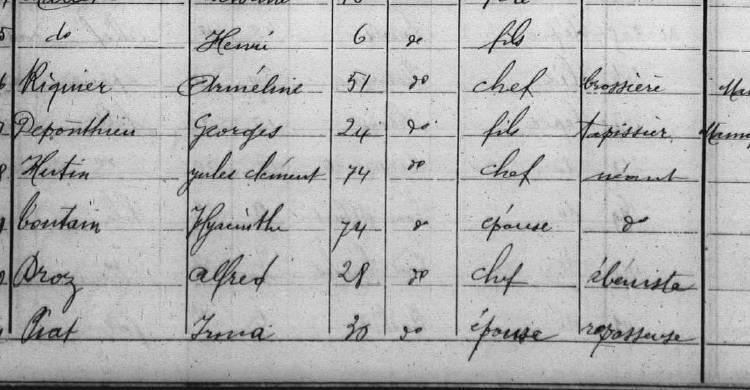 5 do Henri 6 do fils
6 Riquier Arméline 51 do chef brossière
7 Deponthieu Georges 24 do fils tapissier
8 Hutin jules clément 74 do chef néant
9 Contain Hyacinthe 74 do épouse do
0 Droz alfred 28 do chef ébéniste
1 Prat Irma 30 do épouse repasseuse